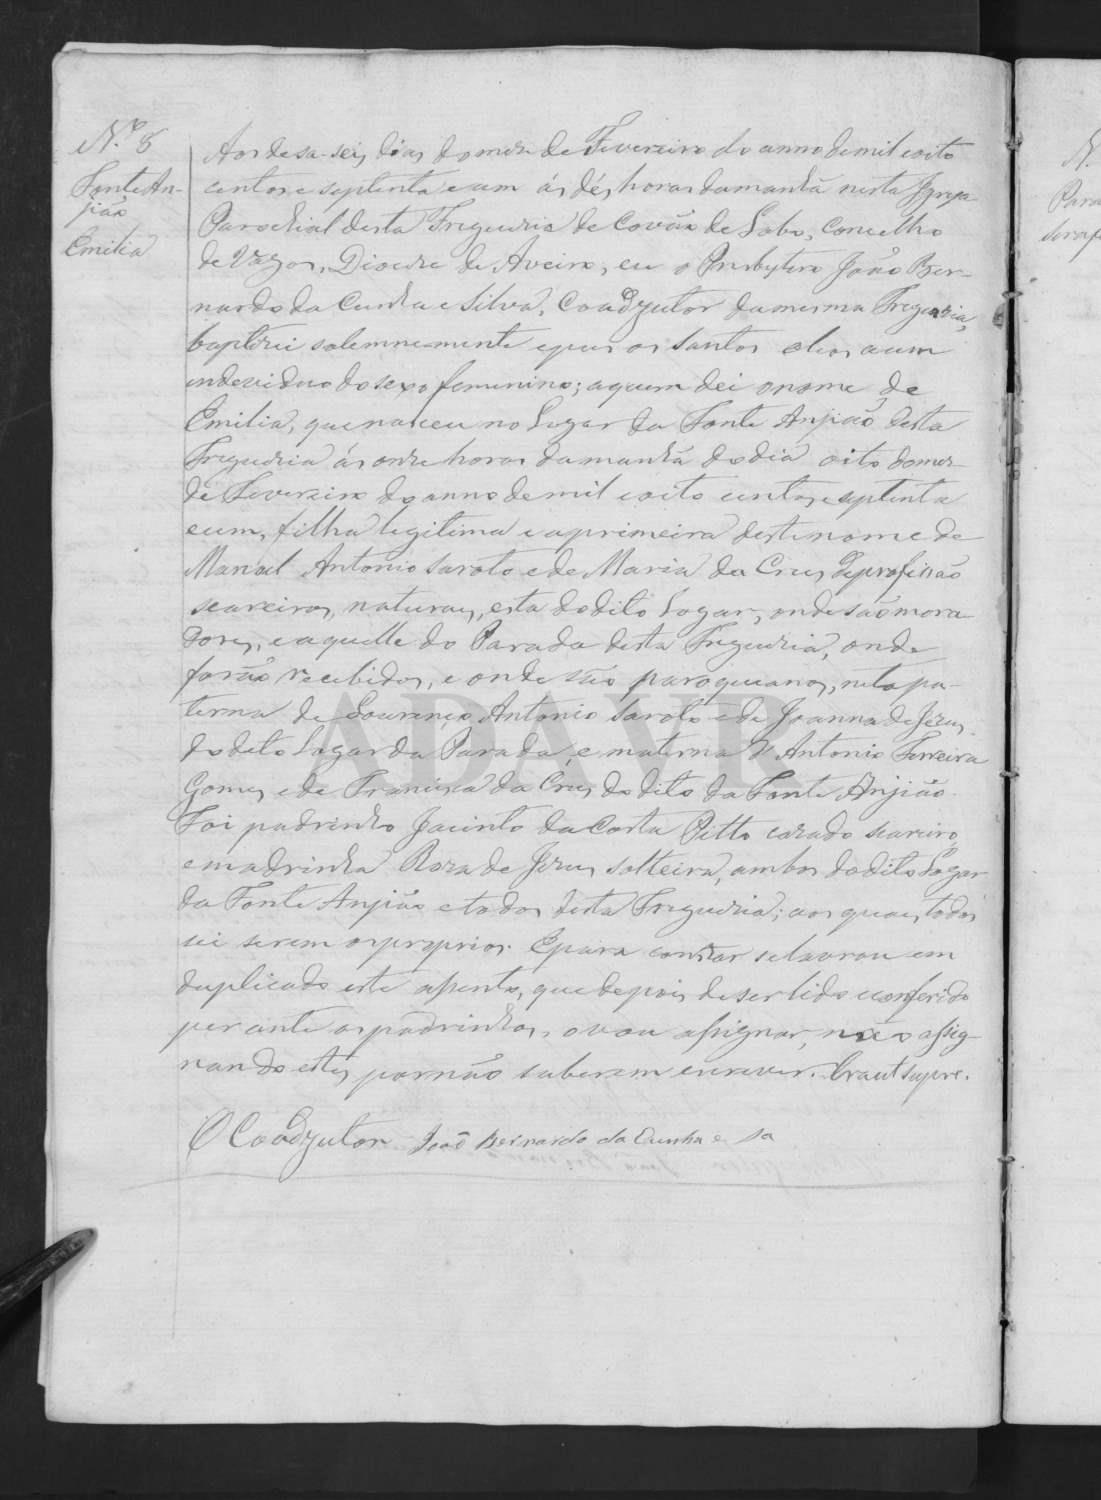 N.º 8
Fonte An-
jião
Emilia
Aos desa-seis dias do mez de Fevereiro do anno de mil e oito
centos e septenta e um ás dés horas da manhã nesta Igreja
Parochial desta Freguezia de Covão de Lobo, Concelho
de Vagos, Diocese de Aveiro, eu o Presbytero João Ber-
nardo da Cunha e Silva, Coadjutor da mesma Freguezia,
baptizei solemnemente e pus os santos oleos a um
endeviduo do sexo femenino; a quem dei o nome de
Emilia, que nasceu no Lugar da Fonte Anjião desta
Freguezia ás onze horas da manhã do dia oito do mez
de Fevereiro do anno de mil e oito centos e septenta
e um, filha legitima e a primeira deste nome de
Manoel Antonio Saroto e de Maria da Cruz de profissão
seareiros, naturaes, esta do dito Logar, onde são mora
dores, e aquelle do Parada desta Freguezia, onde
forão recebidos, e onde são paroquianos, neta pa-
terna de Lourenço Antonio Saroto e de Joanna de Jezus
do dito Logar da Parada, e materna d'Antonio Ferreira
Gomes e de Francisca da Cruz do dito da Fonte Anjião.
Foi padrinho Jacinto da Costa Petto cazado seareiro,
e madrinha Roza de Jezus solteira, ambos do dito Logar
da Fonte Anjião e todos desta Freguezia; aos quaes todos
sei serem os proprios. E para constar se lavrou em
duplicado este assento, que depois de ser lido e conferido
perante os padrinhos, o vou assignar, não assig-
nando estes por não saberem escrever. Era ut supra.
O Coadjutor João Bernardo da Cunha e Sa
ADAVR
N.
Para